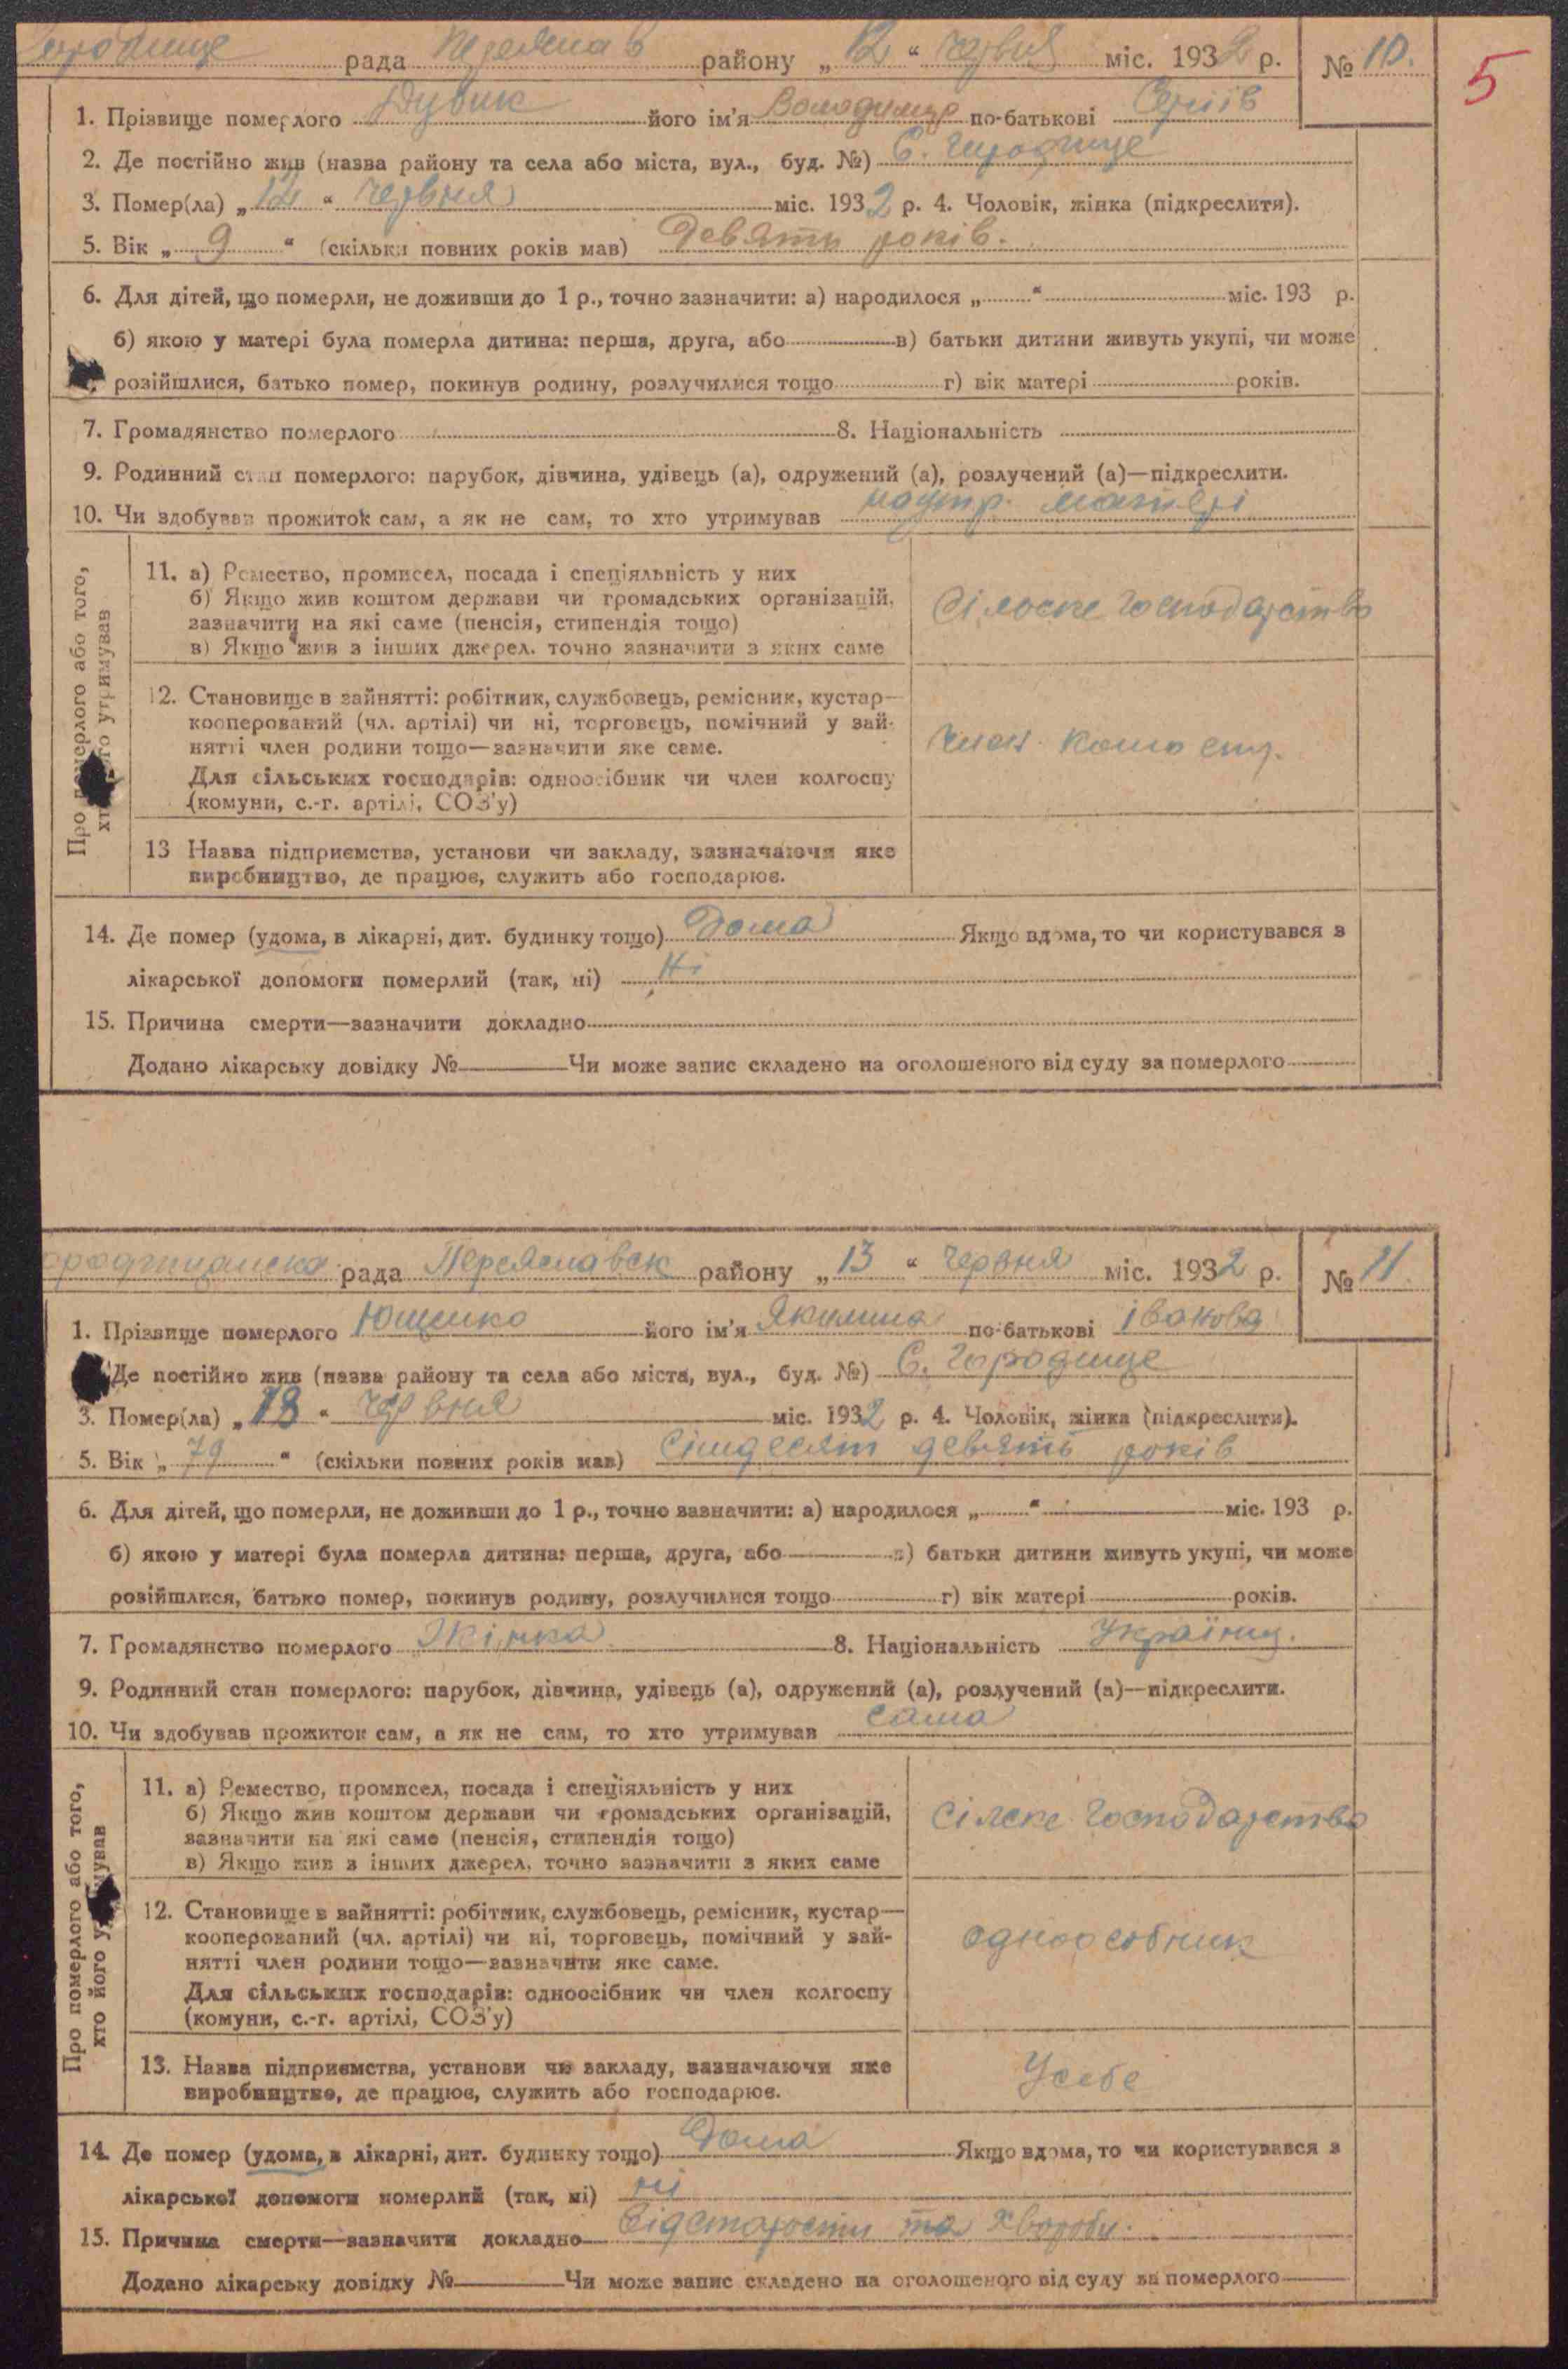 Городище рада Переяслав району „12“ червня міс. 1932 р. № 10.
5
1. Прізвище померлого Дубик його ім'я Володимир по-батькові Сергіїв
2. Де постійно жив (назва району та села або міста, вул., буд. №) С. Городище
3. Помер(ла) „12“ червня міс. 1932 р. 4. Чоловік, жінка (підкреслити).
5. Вік „9“ (скільки повних років мав) Девять років.
6. Для дітей, що померли, не доживши до 1 р., точно зазначити: а) народилося „ “ міс. 193 р.
б) якою у матері була померла дитина: перша, друга, або в) батьки дитини живуть укупі, чи може
розійшлися, батько помер, покинув родину, розлучилися тощо г) вік матері років.
7. Громадянство померлого 8. Національність
9. Родинний стан померлого: парубок, дівчина, удівець (а), одружений (а), розлучений (а)—підкреслити.
10. Чи здобував прожиток сам, а як не сам, то хто утримував матері
Про померлого або того,
хто його утримував
11. а) Ремество, промисел, посада і спеціяльність у них
б) Якщо жив коштом держави чи громадських організацій,
зазначити на які саме (пенсія, стипендія тощо)
в) Якщо жив з інших джерел, точно зазначити з яких саме
Сілоске господарство
12. Становище в зайнятті: робітник, службовець, ремісник, кустар—
кооперований (чл. артілі) чи ні, торговець, помічний у зай-
нятті член родини тощо—зазначити яке саме.
Для сільських господарів: одноосібник чи член колгоспу
(комуни, с.-г. артілі, СОЗ'у)
член
13 Назва підприємства, установи чи закладу, зазначаючи яке
виробництво, де працює, служить або господарює.
14. Де помер (удома, в лікарні, дит. будинку тощо) Дома Якщо вдома, то чи користувався з
лікарської допомоги померлий (так, ні) Ні
15. Причина смерти—зазначити докладно
Додано лікарську довідку № Чи може запис складено на оголошеного від суду за померлого
рада Переяславск району „13“ червня міс. 1932 р. № 11.
1. Прізвище померлого Ющенко його ім'я Якилина по-батькові Іванова
Де постійно жив (назва району та села або міста, вул., буд. №) С. Городище
3. Помер(ла) „13“ червня міс. 1932 р. 4. Чоловік, жінка (підкреслити).
5. Вік „79“ (скільки повних років мав) Сімдесят девять років
6. Для дітей, що померли, не доживши до 1 р., точно зазначити: а) народилося „ “ міс. 193 р.
б) якою у матері була померла дитина: перша, друга, або в) батьки дитини живуть укупі, чи може
розійшлися, батько помер, покинув родину, розлучилися тощо г) вік матері років.
7. Громадянство померлого Жінка 8. Національність Українц.
9. Родинний стан померлого: парубок, дівчина, удівець (а), одружений (а), розлучений (а)—підкреслити.
10. Чи здобував прожиток сам, а як не сам, то хто утримував сама
Про померлого або того,
хто його утримував
11. а) Ремество, промисел, посада і спеціяльність у них
б) Якщо жив коштом держави чи громадських організацій,
зазначити на які саме (пенсія, стипендія тощо)
в) Якщо жив з інших джерел, точно зазначити з яких саме
Сілске господарство
12. Становище в зайнятті: робітник, службовець, ремісник, кустар—
кооперований (чл. артілі) чи ні, торговець, помічний у зай-
нятті член родини тощо—зазначити яке саме.
Для сільських господарів: одноосібник чи член колгоспу
(комуни, с.-г. артілі, СОЗ'у)
одноособник
13. Назва підприємства, установи чи закладу, зазначаючи яке
виробництво, де працює, служить або господарює.
Усебе
14. Де помер (удома, в лікарні, дит. будинку тощо) Дома Якщо вдома, то чи користувався з
лікарської допомоги померлий (так, ні) ні
15. Причина смерти—зазначити докладно Відстарости та хвороби.
Додано лікарську довідку № Чи може запис складено на оголошеного від суду за померлого